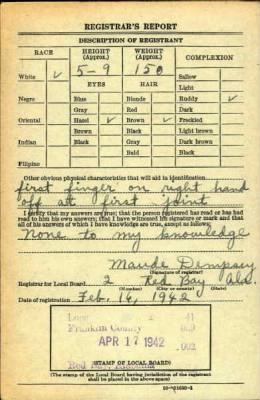 REGISTRAR'S REPORT
DESCRIPTION OF REGISTRANT
RACE HEIGHT (Approx.) WEIGHT (Approx.) COMPLEXION
5-9 150
White ✓ Sallow
EYES HAIR Light
Negro Blue Blonde Ruddy ✓
Gray Red Dark
Oriental Hazel ✓ Brown ✓ Freckled
Brown Black Light brown
Indian Black Gray Dark brown
Bald Black
Filipino
Other obvious physical characteristics that will aid in identification
first finger on right hand
off at first joint
I certify that my answers are true; that the person registered has read or has had
read to him his own answers; that I have witnessed his signature or mark and that
all of his answers of which I have knowledge are true, except as follows:
None to my knowledge
Maude Dempsey
(Signature of registrar)
Registrar for Local Board 2 Red Bay Ala.
(Number) (City or county) (State)
Date of registration Feb. 16, 1942
41
Franklin County
APR 17 1942
002
(STAMP OF LOCAL BOARD)
(The stamp of the Local Board having jurisdiction of the registrant
shall be placed in the above space.)